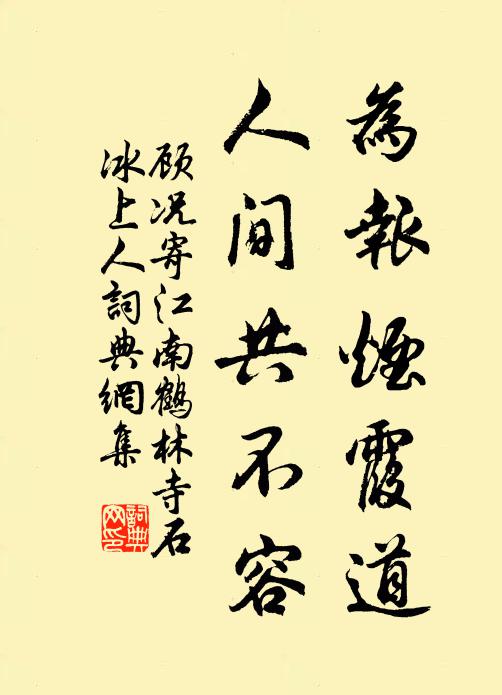 為報煙霞道
人間共不容
顾况寄江南鹤林寺石
冰上人詞典網集
詞典
网印